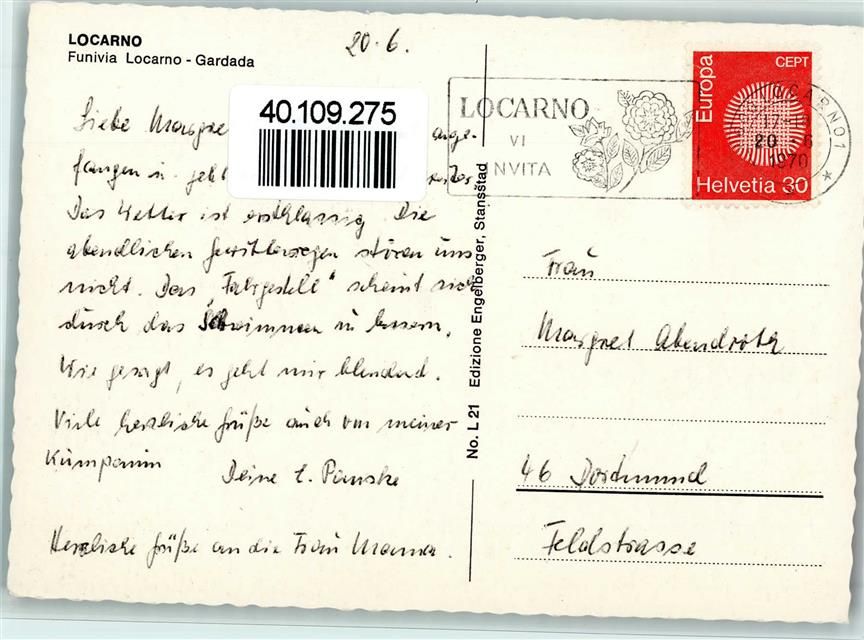 LOCARNO
Funivia Locarno - Gardada
20.6.
Liebe Margre
ange-
fangen u. geht
weiter.
Das Wetter ist erstklassig. Die
abendlichen Gewitterregen stören uns
nicht. Das "Fahrgestell" scheint sich
durch das Schwimmen zu bessern.
Wie gesagt, es geht mir blendend.
Viele herzliche Grüße auch von meiner
Kumpanin
Deine
Herzliche Grüße an die Frau Mama.
40.109.275
No. L 21 Edizione Engelberger, Stansstad
LOCARNO
VI
INVITA
Europa
CEPT
Helvetia 30
LOCARNO 1
20 6
1970
Frau
Margret Abendroth
46 Dortmund
Feldstrasse